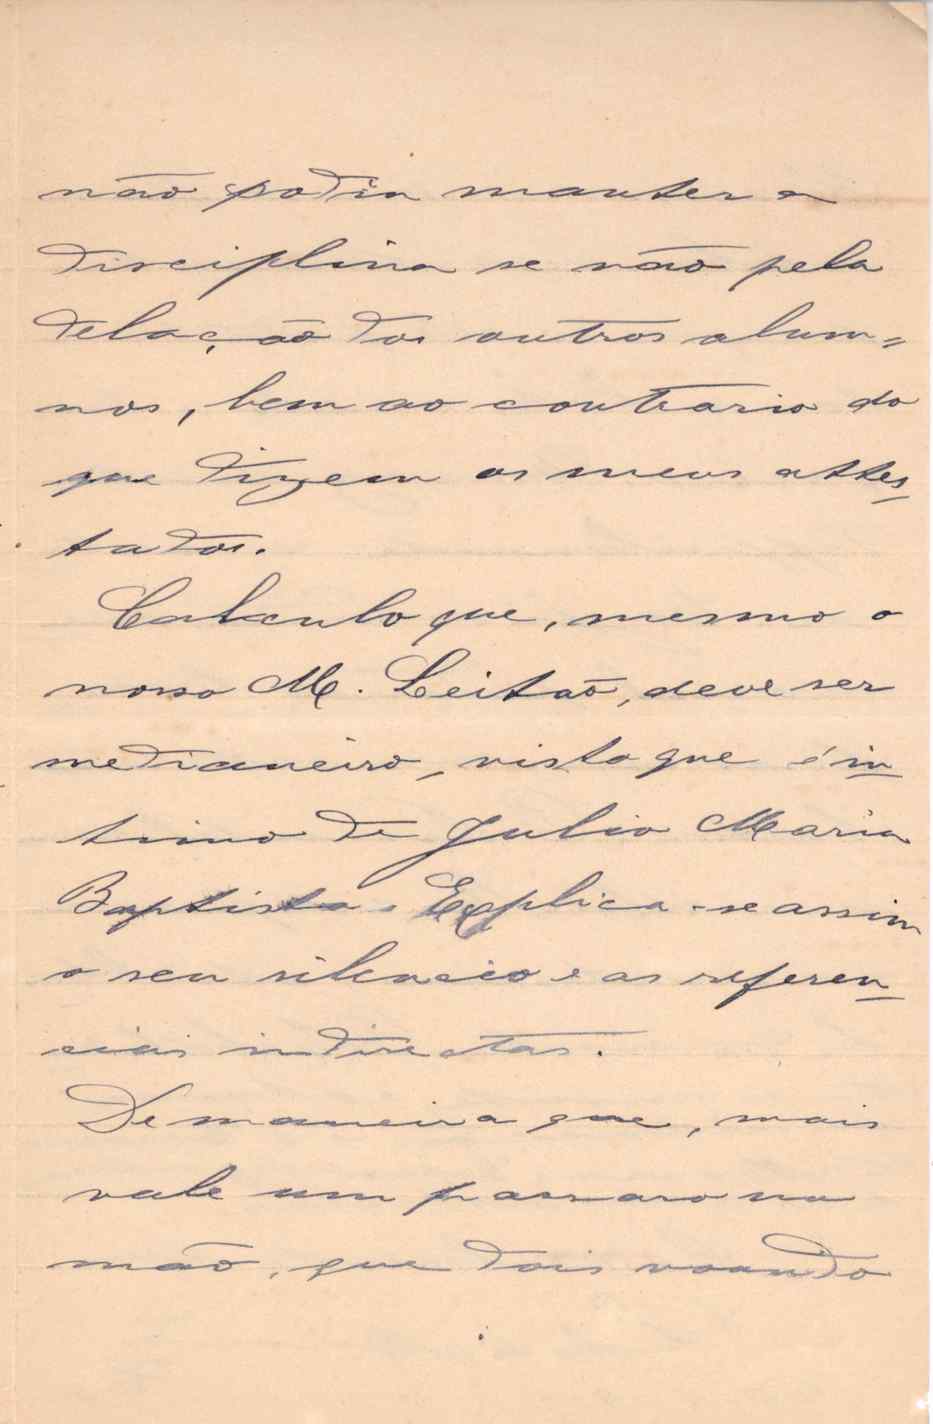 não podia manter a
disciplina se não pela
delação dos outros alum=
nos, bem ao contrario do
que dizem os meus attes-
tados.
Calculo que, mesmo o
nosso M. Leitão, deve ser
medianeiro, visto que é in-
timo de Julio Maria
Baptista. Explica-se assim
o seu silencio e as referen-
cias indirectas.
De maneira que, mais
vale um passaro na
mão, que dois voando